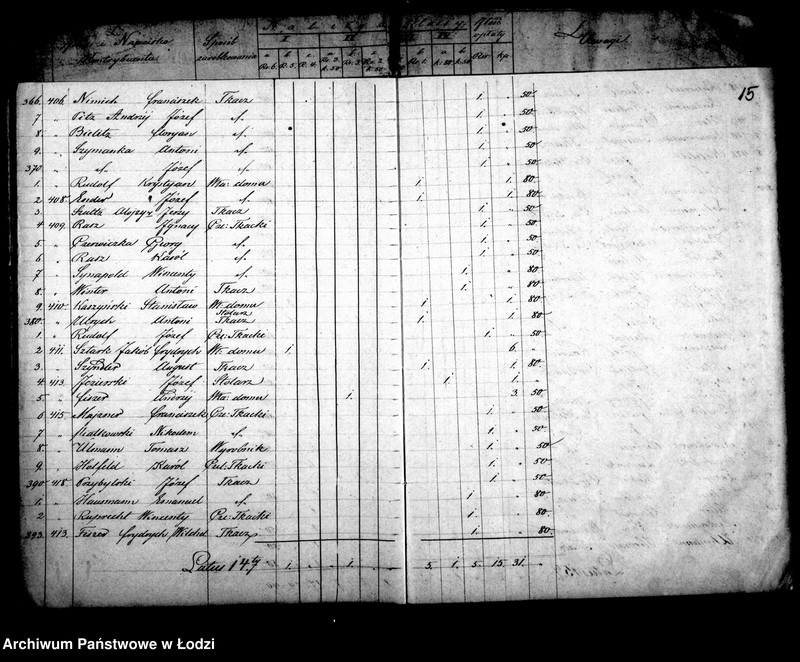 i Nazwiska
Kontrybuenta
Sposób
zarobkowania
Klasy
I II IV
Ilość opłaty
Rsr. kp.
Uwagi
15
366. 406. Nimich Franciszek Tkacz 1. „ 50
7 „ Pilz Andrzej Józef „ 1. „ 50
8. „ Bielitz Floryan „ 1. „ 50
9. „ Szymanka Antoni „ 1. „ 50
370 „ „ Józef „ 1. „ 50
1. „ Rudolf Krystyan Wła: domu 1. 1. 80
2 408. Józef „ 1. 1. 80
3. Jerzy Tkacz 1. „ 50
4 409. Rasz Ignacy Cze: Tkacki 1. „ 50
5. „ Czerwiczka „ 1. „ 50
6. „ Rasz Karól „ 1. „ 50
7 „ Synapold Wincenty „ 1. „ 80
8. „ Winter Antoni Tkacz 1. „ 80
9. 410. Karzyński Stanisław Wł: domu 1. 1. 80
380. „ Ulrych Antoni Stolarz Tkacz 1. 1. 80
1. „ Rudolf Józef Cze: Tkacki 1. „ 50
2 411. Sztark Jakób Frydrych Wł: domu 1. 6. „
3. „ Sznyder August Tkacz 1. 1. 80
4. 413. Jezierski Józef Stolarz 1. 1. „
5. „ Fiszer Andrzej Wła: domu 1. 3. 50
6 415. Majzner Franciszek Cze: Tkacki 1. „ 50
7 „ Małkowski Nikodem „ 1. „ 50
8 „ Ulmann Tomasz Wyrobnik 1. „ 50
9. „ Holfeld Karól Czel: Tkacki 1. „ 50
390 418. Przybylski Józef Tkacz 1. „ 50
1. „ Hausmann Emanuel „ 1. „ 80
2 „ Ruprecht Wincenty Cze: Tkacki 1. „ 80
393. 413. Feszer Frydrych Wilchel Tkacz 1. „ 80
Latus 147 1. 1. 5. 1. 5. 15. 31. „
Archiwum Państwowe w Łodzi